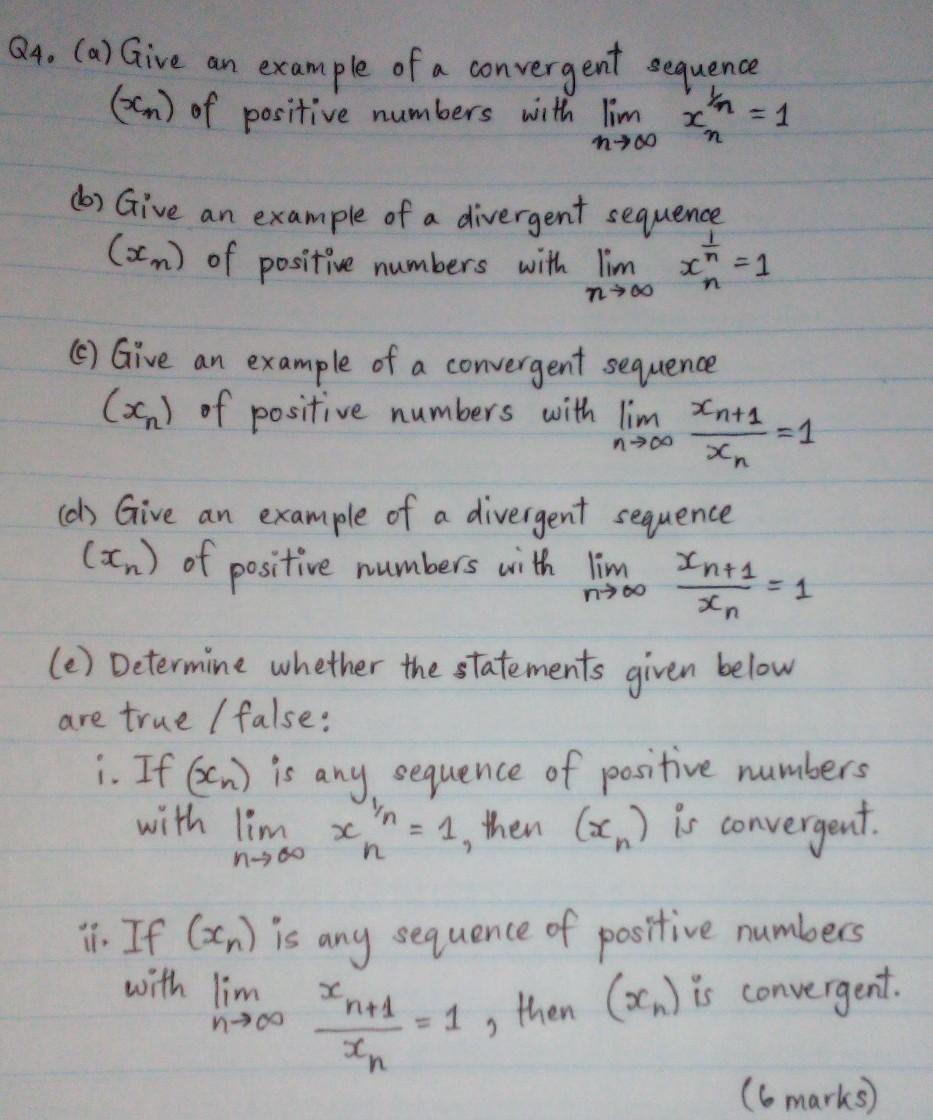 Q4. (a) Give an example of a convergent sequence
(xₙ) of positive numbers with lim n→∞ xₙ^(1/n) = 1
(b) Give an example of a divergent sequence
(xₙ) of positive numbers with lim n→∞ xₙ^(1/n) = 1
(c) Give an example of a convergent sequence
(xₙ) of positive numbers with lim n→∞ xₙ₊₁/xₙ = 1
(d) Give an example of a divergent sequence
(xₙ) of positive numbers with lim n→∞ xₙ₊₁/xₙ = 1
(e) Determine whether the statements given below
are true / false:
i. If (xₙ) is any sequence of positive numbers
with lim n→∞ xₙ^(1/n) = 1, then (xₙ) is convergent.
ii. If (xₙ) is any sequence of positive numbers
with lim n→∞ xₙ₊₁/xₙ = 1, then (xₙ) is convergent.
(6 marks)